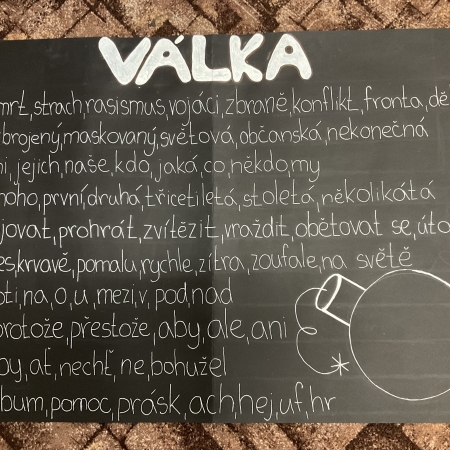 VÁLKA
mrt, strach, rasismus, vojáci, zbraně, konflikt, fronta, dě
brojený, maskovaný, světová, občanská, nekonečná
i, jejich, naše, kdo, jaká, co, někdo, my
noho, první, druhá, třicetiletá, stoletá, několikátá
jovat, prohrát, zvítězit, vraždit, obětovat se, úto
es, krvavě, pomalu, rychle, zítra, zoufale, na světě
oti, na, o, u, mezi, v, pod, nad
protože, přestože, aby, ale, ani
by, ať, nechť, ne, bohužel
bum, pomoc, prásk, ach, hej, uf, hr